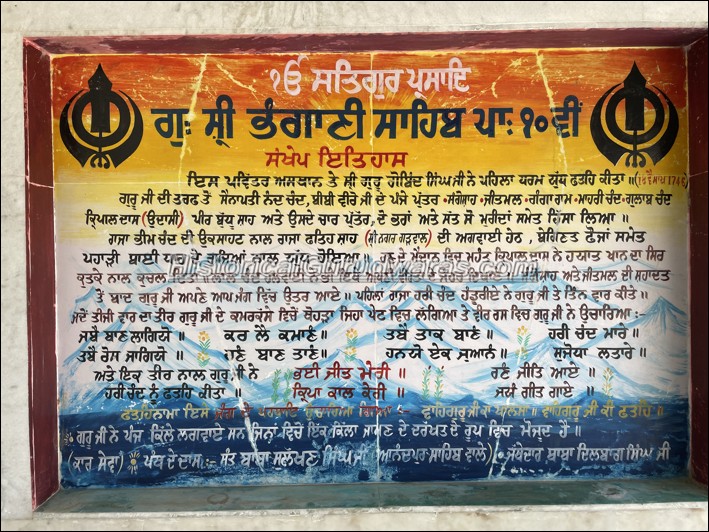 ੴ ਸਤਿਗੁਰ ਪ੍ਰਸਾਦਿ
ਗੁ: ਸ਼੍ਰੀ ਭੰਗਾਣੀ ਸਾਹਿਬ ਪਾ: ੧੦ਵੀਂ
ਸੰਖੇਪ ਇਤਿਹਾਸ
ਇਸ ਪਵਿੱਤਰ ਅਸਥਾਨ ਤੇ ਸ਼੍ਰੀ ਗੁਰੂ ਗੋਬਿੰਦ ਸਿੰਘ ਜੀ ਨੇ ਪਹਿਲਾ ਧਰਮ ਯੁੱਧ ਫਤਹਿ ਕੀਤਾ ॥
ਗੁਰੂ ਜੀ ਦੀ ਤਰਫ ਤੋਂ ਸੈਨਾਪਤੀ ਨੰਦ ਚੰਦ, ਬੀਬੀ ਵੀਰੋ ਜੀ ਦੇ ਪੰਜੇ ਪੁੱਤਰ ਸੰਗੋਸ਼ਾਹ ਜੀਤਮਲ ਗੰਗਾ ਰਾਮ ਮਾਹਰੀ ਚੰਦ ਗੁਲਾਬ ਚੰਦ
ਕ੍ਰਿਪਾਲ ਦਾਸ (ਉਦਾਸੀ) ਪੀਰ ਬੁੱਧੂ ਸ਼ਾਹ ਅਤੇ ਉਸਦੇ ਚਾਰ ਪੁੱਤਰ, ਦੋ ਭਰਾ ਅਤੇ ਸੱਤ ਸੌ ਮੁਰੀਦਾਂ ਸਮੇਤ ਹਿੱਸਾ ਲਿਆ ॥
ਰਾਜਾ ਭੀਮ ਚੰਦ ਦੀ ਉਕਸਾਹਟ ਨਾਲ ਰਾਜਾ ਫਤਿਹ ਸ਼ਾਹ (ਸ਼੍ਰੀ ਨਗਰ ਗੜਵਾਲ) ਦੀ ਅਗਵਾਈ ਹੇਠ, ਬੇਗਿਣਤ ਫੌਜਾਂ ਸਮੇਤ
ਪਹਾੜੀ ਬਾਈ ਧਾਰ ਦੇ ਰਾਜਿਆਂ ਨਾਲ ਯੁੱਧ ਹੋਇਆ ॥ ਰਣ ਦੇ ਮੈਦਾਨ ਵਿਚ ਮਹੰਤ ਕ੍ਰਿਪਾਲ ਦਾਸ ਨੇ ਹਯਾਤ ਖਾਨ ਦਾ ਸਿਰ
historicalGurudwaras.com
ਕੁਤਕੇ ਨਾਲ ਕੁਚਲ ਸੰਗੋਸ਼ਾਹ ਅਤੇ ਜੀਤਮਲ ਦੀ ਸ਼ਹਾਦਤ
ਤੋਂ ਬਾਦ ਗੁਰੂ ਜੀ ਆਪਣੇ ਆਪ ਜੰਗ ਵਿਚ ਉਤਰ ਆਏ ॥ ਪਹਿਲਾਂ ਰਾਜਾ ਹਰੀ ਚੰਦ ਹੰਡੂਰੀਏ ਨੇ ਗੁਰੂ ਜੀ ਤੇ ਤਿੰਨ ਵਾਰ ਕੀਤੇ ॥
ਜਦੋਂ ਤੀਜੀ ਵਾਰ ਦਾ ਤੀਰ ਗੁਰੂ ਜੀ ਦੇ ਕਮਰਕੱਸੇ ਵਿਚੋਂ ਥੋਹੜਾ ਜਿਹਾ ਪੇਟ ਵਿਚ ਲੱਗਿਆ ਤੇ ਵੀਰ ਰਸ ਵਿਚ ਗੁਰੂ ਜੀ ਨੇ ਉਚਾਰਿਆ:-
ਜਬੈ ਬਾਣ ਲਾਗਿਯੋ ॥ ਕਰ ਲੈ ਕਮਾਣੰ ॥ ਤਬੈ ਤਾਕ ਬਾਣੰ ॥ ਹਰੀ ਚੰਦ ਮਾਰੇ ॥
ਤਬੈ ਰੋਸ ਜਾਗਿਯੋ ॥ ਹਣੇ ਬਾਣ ਤਾਣੰ ॥ ਹਨਯੋ ਏਕ ਜੁਆਨੰ ॥ ਸੁਜੋਧਾ ਲਤਾਰੇ ॥
ਅਤੇ ਇਕ ਤੀਰ ਨਾਲ ਗੁਰੂ ਜੀ ਨੇ ਭਈ ਜੀਤ ਮੇਰੀ ॥ ਰਣੰ ਜੀਤਿ ਆਏ ॥
ਹਰੀ ਚੰਦ ਨੂੰ ਫਤਹਿ ਕੀਤਾ ॥ ਕ੍ਰਿਪਾ ਕਾਲ ਕੇਰੀ ॥ ਜਯੰ ਗੀਤ ਗਾਏ ॥
ਫਤਹਿਨਾਮਾ ਇਸ ਜੰਗ ਦੇ ਵਾਹਿਗੁਰੂ ਜੀ ਕਾ ਖਾਲਸਾ ॥ ਵਾਹਿਗੁਰੂ ਜੀ ਕੀ ਫਤਹਿ ॥
ਗੁਰੂ ਜੀ ਨੇ ਪੰਜ ਕਿੱਲੇ ਲਗਵਾਏ ਸਨ ਜਿਨ੍ਹਾਂ ਵਿਚੋਂ ਇੱਕ ਕਿੱਲਾ ਜਾਮਣ ਦੇ ਦਰੱਖਤ ਦੇ ਰੂਪ ਵਿਚ ਮੌਜੂਦ ਹੈ ॥
(ਕਾਰ ਸੇਵਾ) ਪੰਥ ਦੇ ਦਾਸ :- ਸੰਤ ਬਾਬਾ ਸੁਲੱਖਣ ਸਿੰਘ ਜੀ (ਆਨੰਦਪੁਰ ਸਾਹਿਬ ਵਾਲੇ) ਜੱਥੇਦਾਰ ਬਾਬਾ ਦਿਲਬਾਗ ਸਿੰਘ ਜੀ